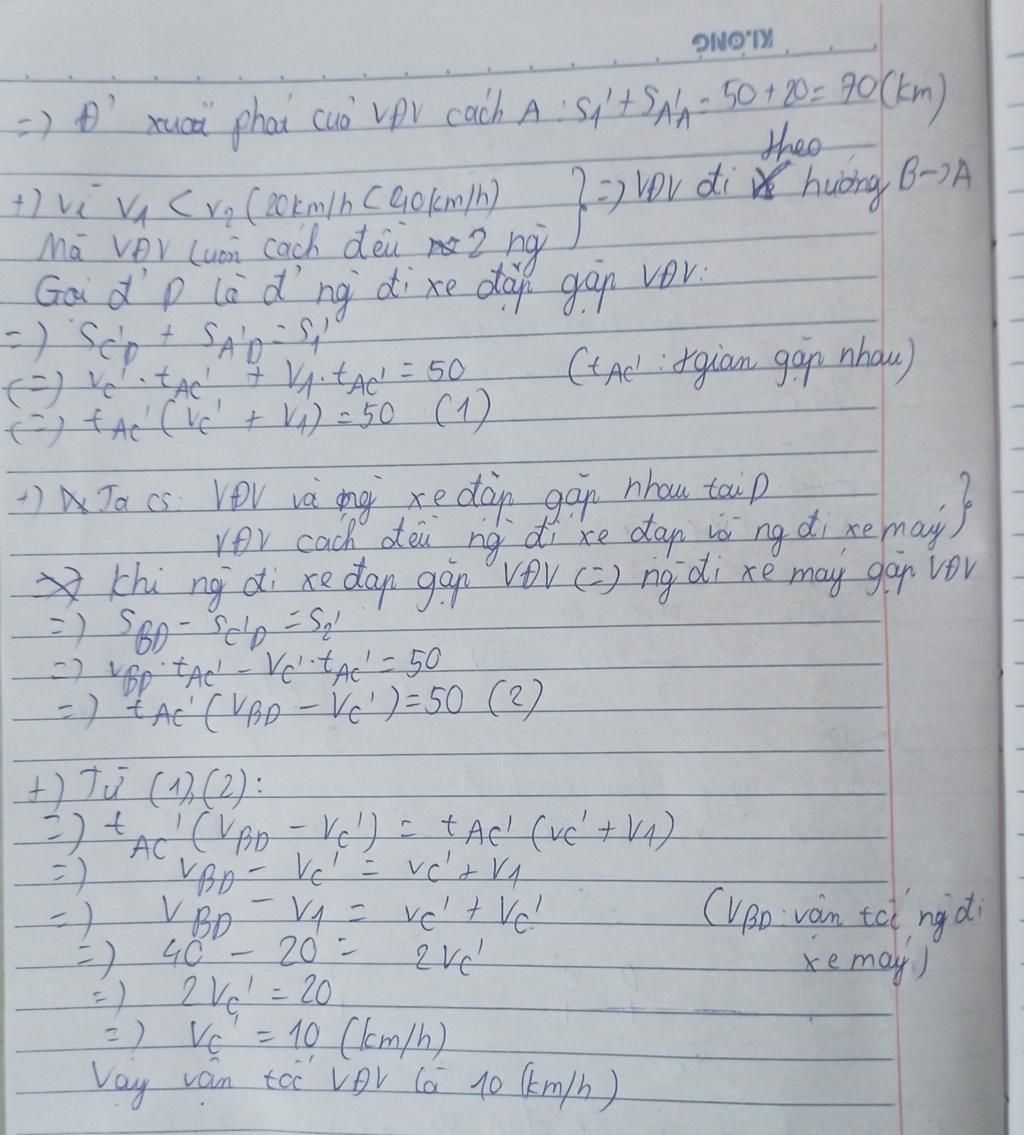 KLONG
=) Đ' xuất phát của VĐV cách A : S1' + SA'A = 50 + 20 = 70 (km)
+) Vì V1 < V2 (20km/h < 40km/h) } =) VĐV đi theo hướng B->A
Mà VĐV luôn cách đều 2 ng̀
Gọi đ' D là đ' ng̀ đi xe đạp gặp VĐV:
=) SC'D + SA'D = S1'
(=) VC' . tAC' + V1 . tAC' = 50 (tAC' : tgian gặp nhau)
(=) tAC' (VC' + V1) = 50 (1)
+) Ta có: VĐV và ng̀ xe đạp gặp nhau tại D }
VĐV cách đều ng̀ đi xe đạp và ng đi xe máy
Khi ng̀ đi xe đạp gặp VĐV (=) ng̀ đi xe máy gặp VĐV
=) SBD - SC'D = S2'
=) VBD . tAC' - VC' . tAC' = 50
=) tAC' (VBD - VC') = 50 (2)
+) Từ (1), (2):
=) tAC' (VBD - VC') = tAC' (VC' + V1)
=) VBD - VC' = VC' + V1
=) VBD - V1 = VC' + VC' (VBD : vận tốc ng̀ đi
=) 40 - 20 = 2VC' xe máy)
=) 2VC' = 20
=) VC' = 10 (km/h)
Vậy vận tốc VĐV là 10 (km/h)